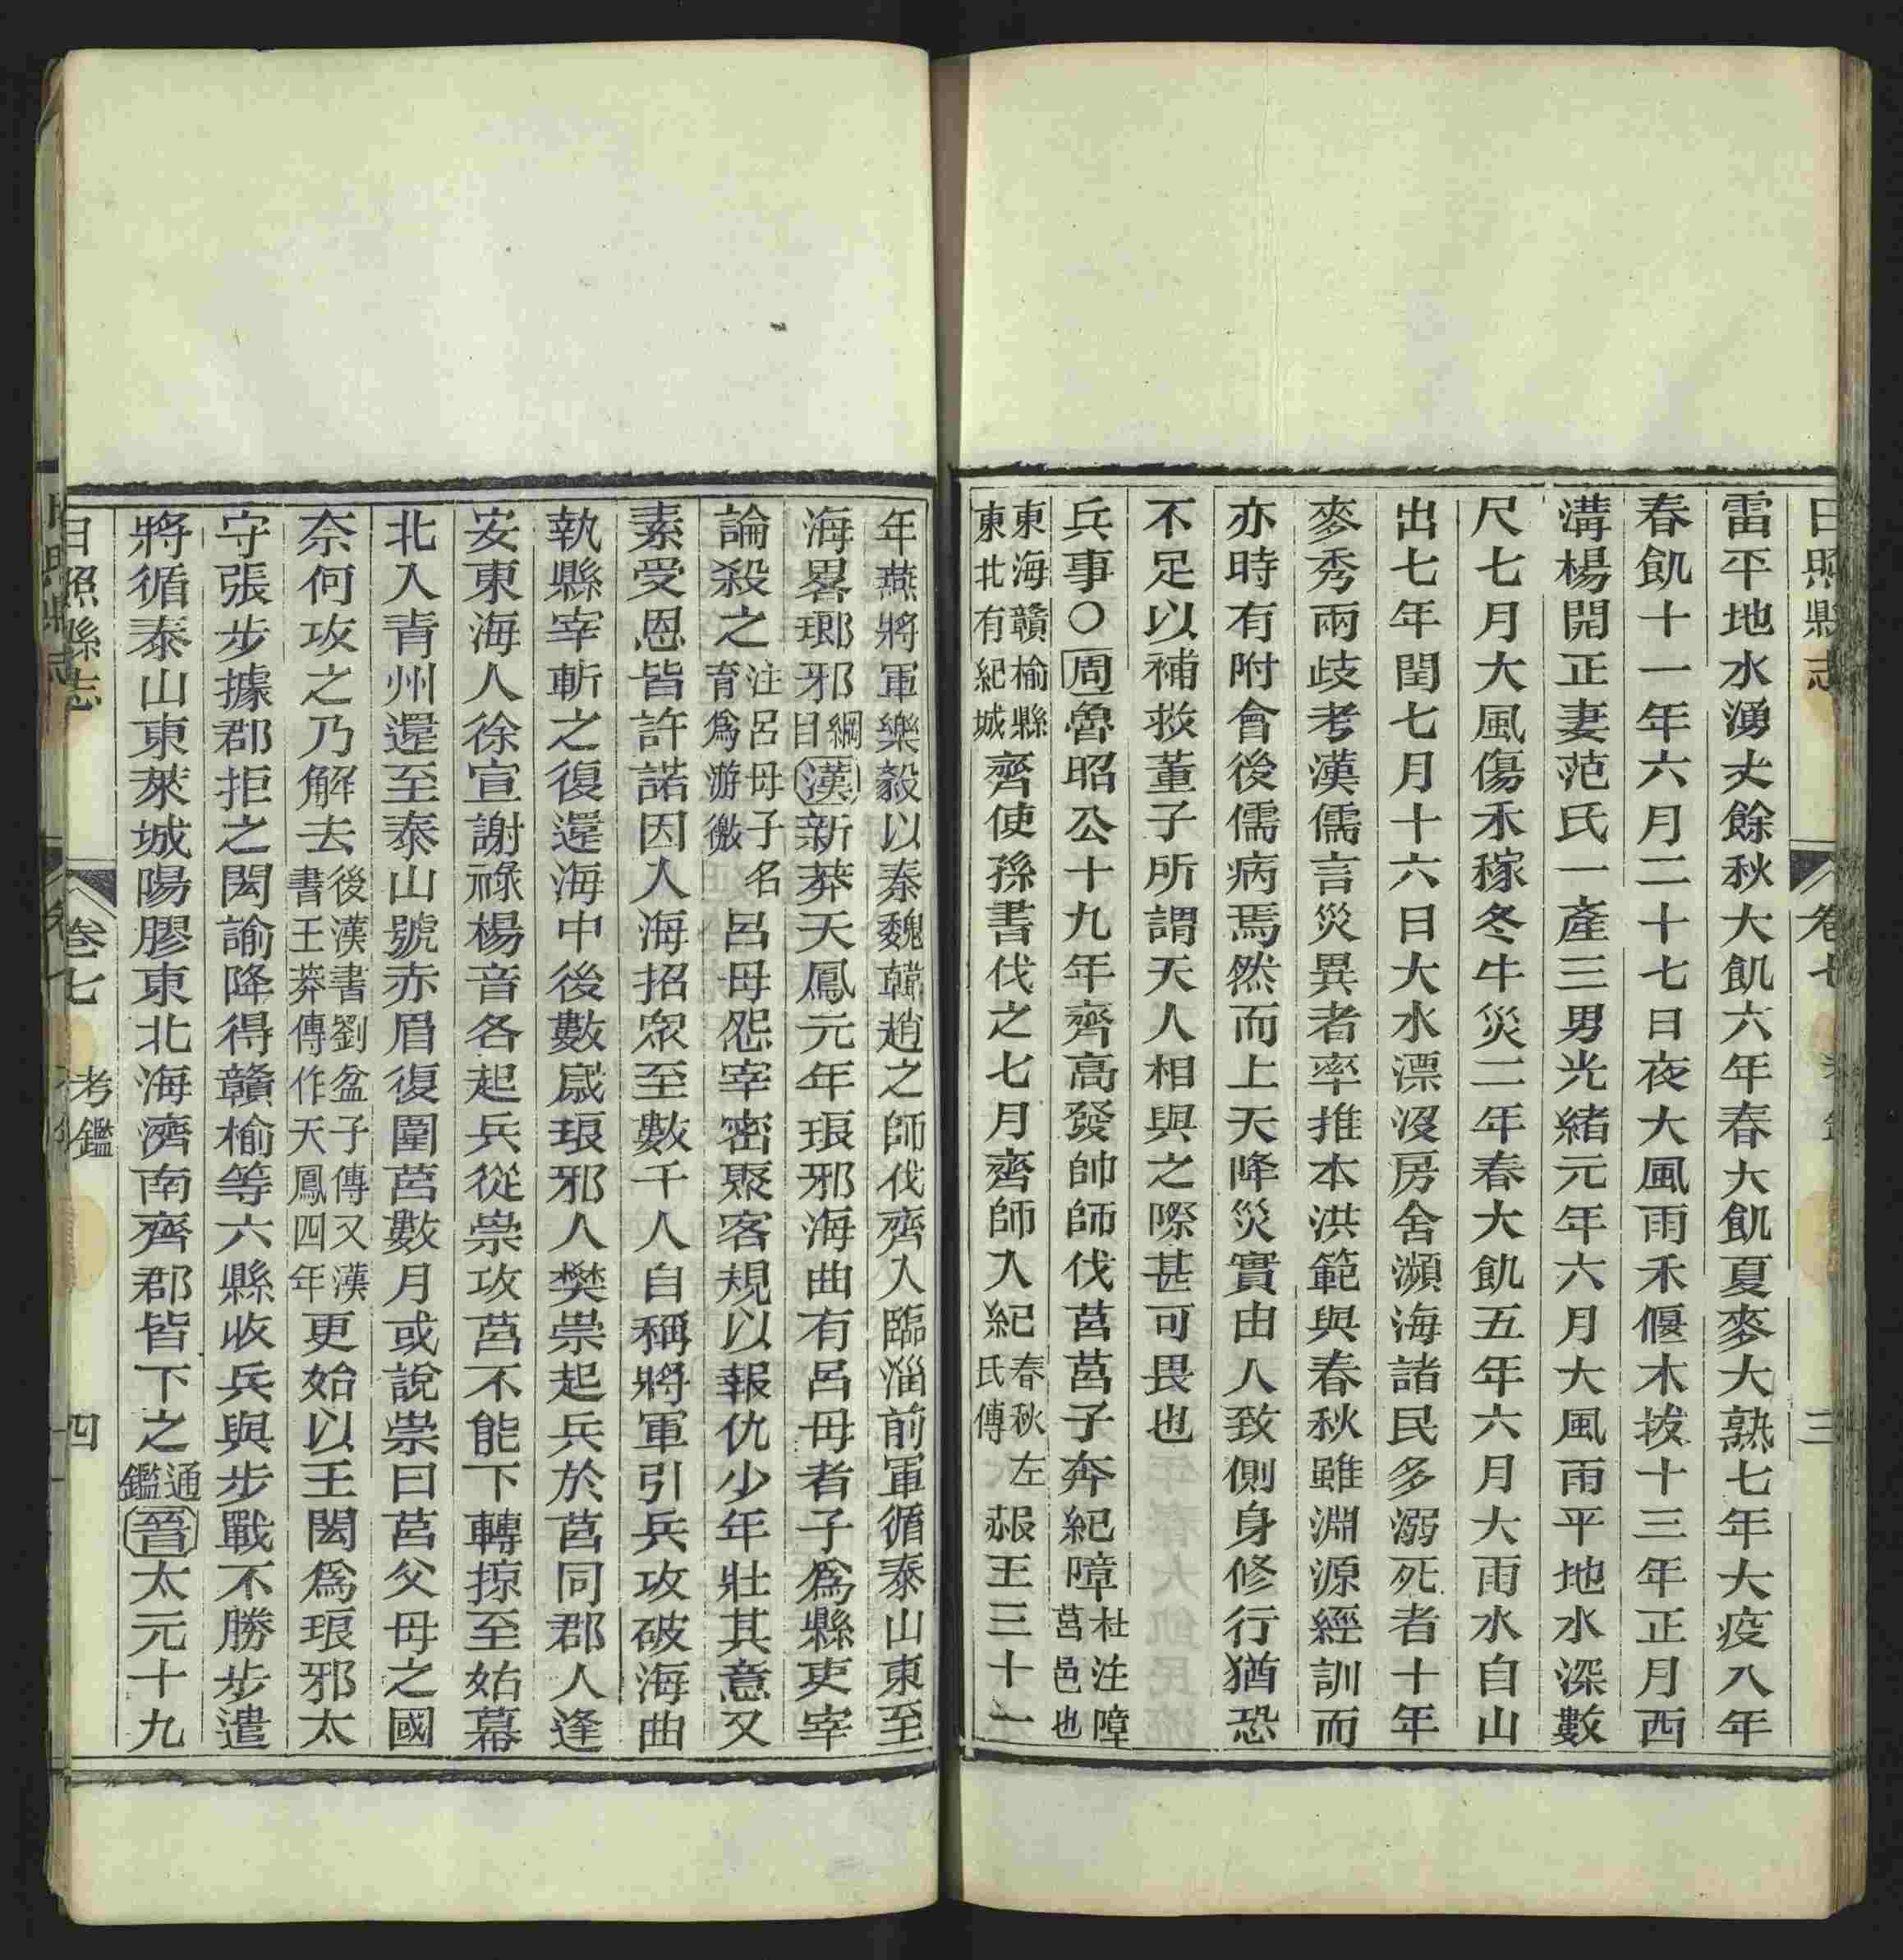 日照縣志 卷七 三
雷平地水湧丈餘秋大飢六年春大飢夏麥大熟七年大疫八年
春飢十一年六月二十七日夜大風雨禾偃木拔十三年正月西
溝楊開正妻范氏一產三男光緒元年六月大風雨平地水深數
尺七月大風傷禾稼冬牛災二年春大飢五年六月大雨水自山
出七年閏七月十六日大水漂沒房舍瀕海諸民多溺死者十年
麥秀兩歧考漢儒言災異者率推本洪範與春秋雖淵源經訓而
亦時有附會後儒病焉然而上天降災實由人致側身修行猶恐
不足以補救董子所謂天人相與之際甚可畏也
兵事○周魯昭公十九年齊高發帥師伐莒莒子奔紀障杜注障莒邑也
東海贛榆縣東北有紀城齊使孫書伐之七月齊師入紀春秋左氏傳赧王三十一
年燕將軍樂毅以秦魏韓趙之師伐齊入臨淄前軍循泰山東至
海畧瑯邪綱目漢新莽天鳳元年琅邪海曲有呂母者子爲縣吏宰
論殺之注呂母子名育爲游徼呂母怨宰密聚客規以報仇少年壯其意又
素受恩皆許諾因入海招眾至數千人自稱將軍引兵攻破海曲
執縣宰斬之復還海中後數歲琅邪人樊崇起兵於莒同郡人逄
安東海人徐宣謝祿楊音各起兵從崇攻莒不能下轉掠至姑幕
北入青州還至泰山號赤眉復圍莒數月或說崇曰莒父母之國
奈何攻之乃解去後漢書劉盆子傳又漢書王莽傳作天鳳四年更始以王閎爲琅邪太
守張步據郡拒之閎諭降得贛榆等六縣收兵與步戰不勝步遣
將循泰山東萊城陽膠東北海濟南齊郡皆下之通鑑晉太元十九
日照縣志 卷七 考鑑 四